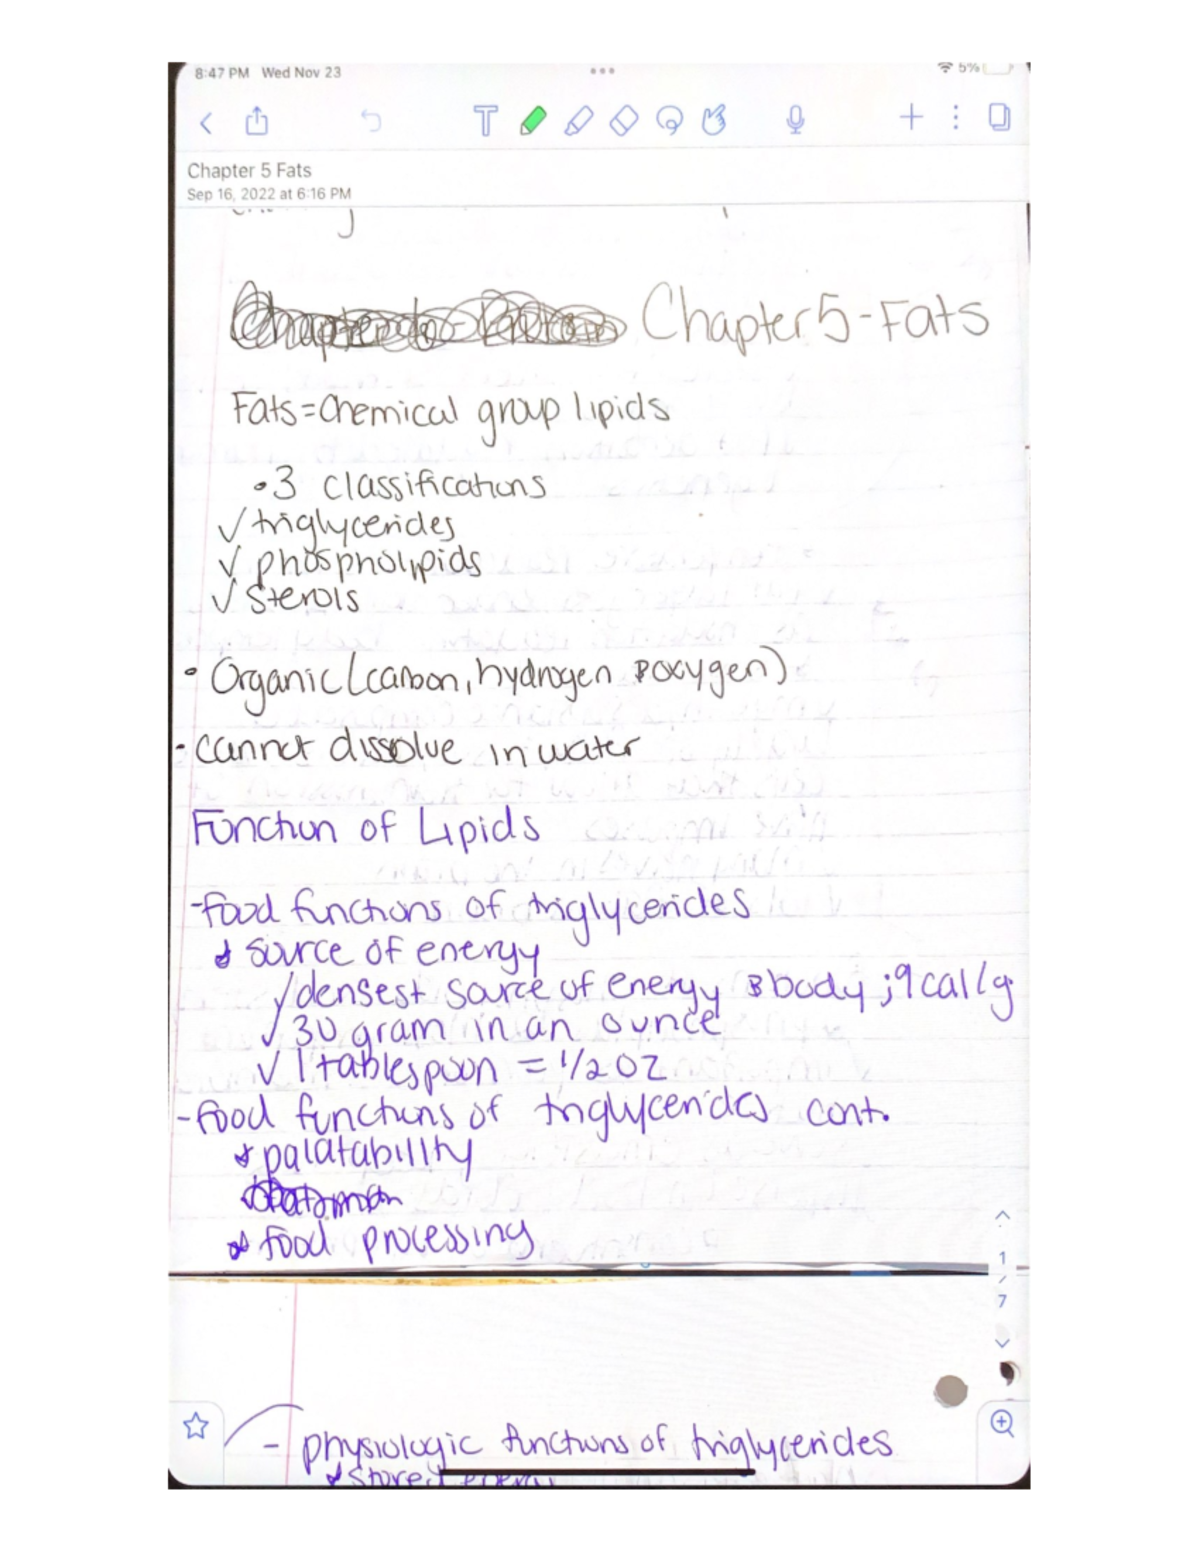 8:47 PM Wed Nov 23
5%
Chapter 5 Fats
Sep 16, 2022 at 6:16 PM
Chapter 5 - Fats
Fats = Chemical group lipids
• 3 classifications
✓ triglycerides
✓ phospholipids
✓ sterols
• Organic (carbon, hydrogen & oxygen)
• cannot dissolve in water
Function of Lipids
- food functions of triglycerides
* source of energy
✓ densest source of energy & body ; 9 cal/g
✓ 30 gram in an ounce
✓ 1 tablespoon = 1/2 oz
- food functions of triglycerides cont.
* palatability
* food processing
1
/
7
- physiologic functions of triglycerides
* stored energy